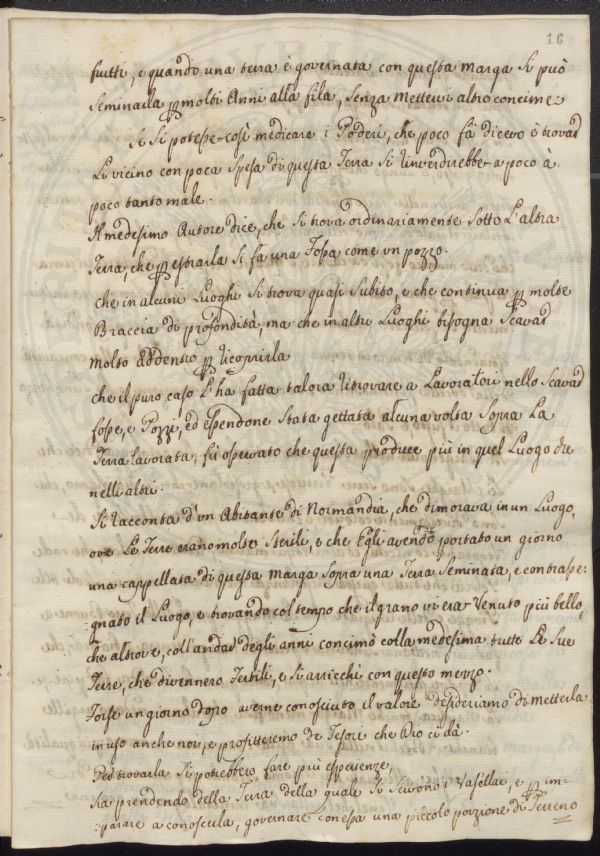 16
frutti, e quando una terra è governata con questa marga si può
Seminarla p molti Anni alla fila, senza mettervi altro concime:
Se si potesse così medicare i Poderi, che poco fà dicevo è trovar
Lì vicino con poca spesa di questa Terra si rinverdirebbe a poco à
poco tanto male.
Il medesimo Autore dice, che si trova ordinariamente sotto L'altra
Terra, che p estrarla si fa una Fossa come un pozzo.
che in alcuni Luoghi si trova quasi subito, e che continua p molte
Braccia di profondità, ma che in altri Luoghi bisogna scavar
molto addentro p ricoprirla
che il puro caso L'ha fatta talora ritrovare a Lavoratori nello scavar
fosse, e Pozzi, ed essendone stata gettata alcuna volta sopra La
Terra lavorata, fù osservato che questa produce più in quel Luogo che
nelli altri.
Si racconta d'un Abitante di Normandia, che dimorava in un Luogo,
ove Le Terre erano molte sterili, e che Egli avendo portato un giorno
una cappellata di questa marga sopra una Terra seminata, e contrasse:
:gnato il Luogo, e trovando col tempo che il grano vi era venuto più bello,
che altrove, coll'andar degli anni concimò colla medesima tutte Le sue
Terre, che divennero fertili, e si arricchì con questo mezzo.
Forse un giorno dopo averne conosciuto il valore desideriamo di metterla
in uso anche noi, e profitteremo de Tesori che Dio ci dà.
Per trovarla si potrebbero fare più esperienze,
sia prendendo della Terra della quale si servono i Vasellai, e p im=
:parare a conoscerla, governare con essa una piccolo porzione di Terreno